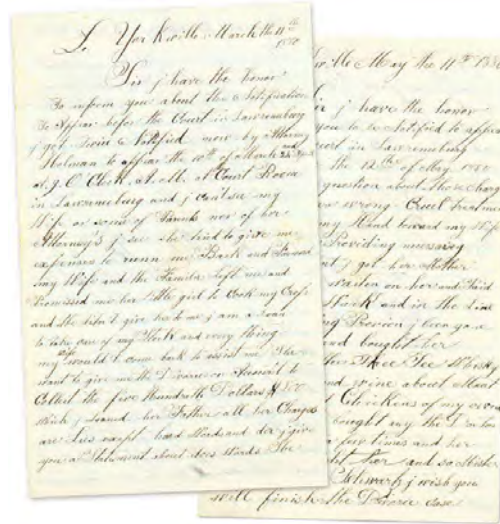 Yorkville March the 11th
1880
Sir j have the honor
To inform you about the Notification
To Appear before the Court in Lawrenceburg
j got twice Notified now by Attorney
Holman to appear the 10th of March and
at 9. O Clock at at Court Room
in Lawrenceburg and j cant see my
Wife or some of Family nor of her
Attorneys j see she tried to give me
expenses to runn me Back and Forward
my Wife and the Famila left me and
Promissed me her little girl to Cook my Crops
and she didn't give her to me j am a man
to take care of my Stock and every thing
my would come back to assist me She
want to give me the Divorce on Account to
Collect the five Hundreth Dollars
Wich j loaned her Father all her Charges
are Lies except hard Words and der j give
you a Statement about does Words She
ville May the 11th 1880
j have the honor
you to be Notified to appear
Court in Lawrenceburg
the 12th of May 1880
question about those Charges
wrong Cruel Treatment
my Hand toward my Wife
Providing necessary
j got her Mother
waiten on her and Paid
Week and in the time
j been gone
and bought her
Tee Whisky
and wine about
Chickens of my own
bought my the Doctor
a few times and her
her and so Mister
Stewart j wish you
will finish the Divorce case